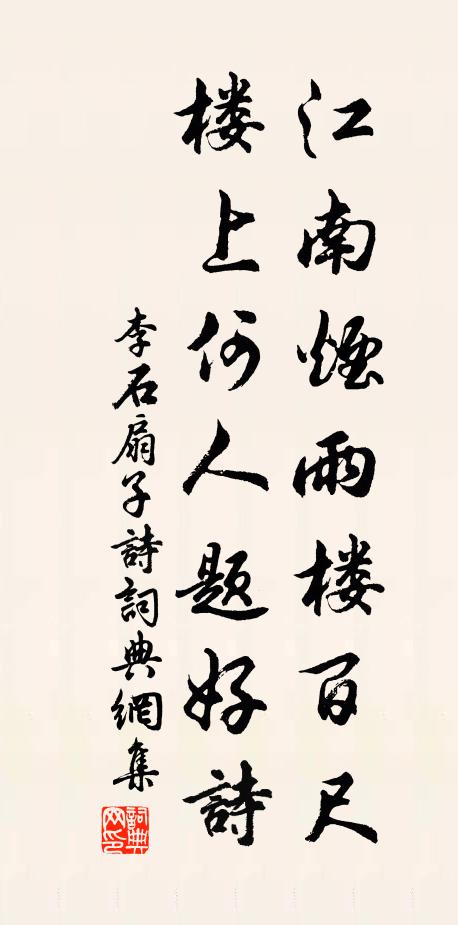 江南煙雨楼百尺
楼上何人题好詩
李石扇子詩詞典網集
詞典网印